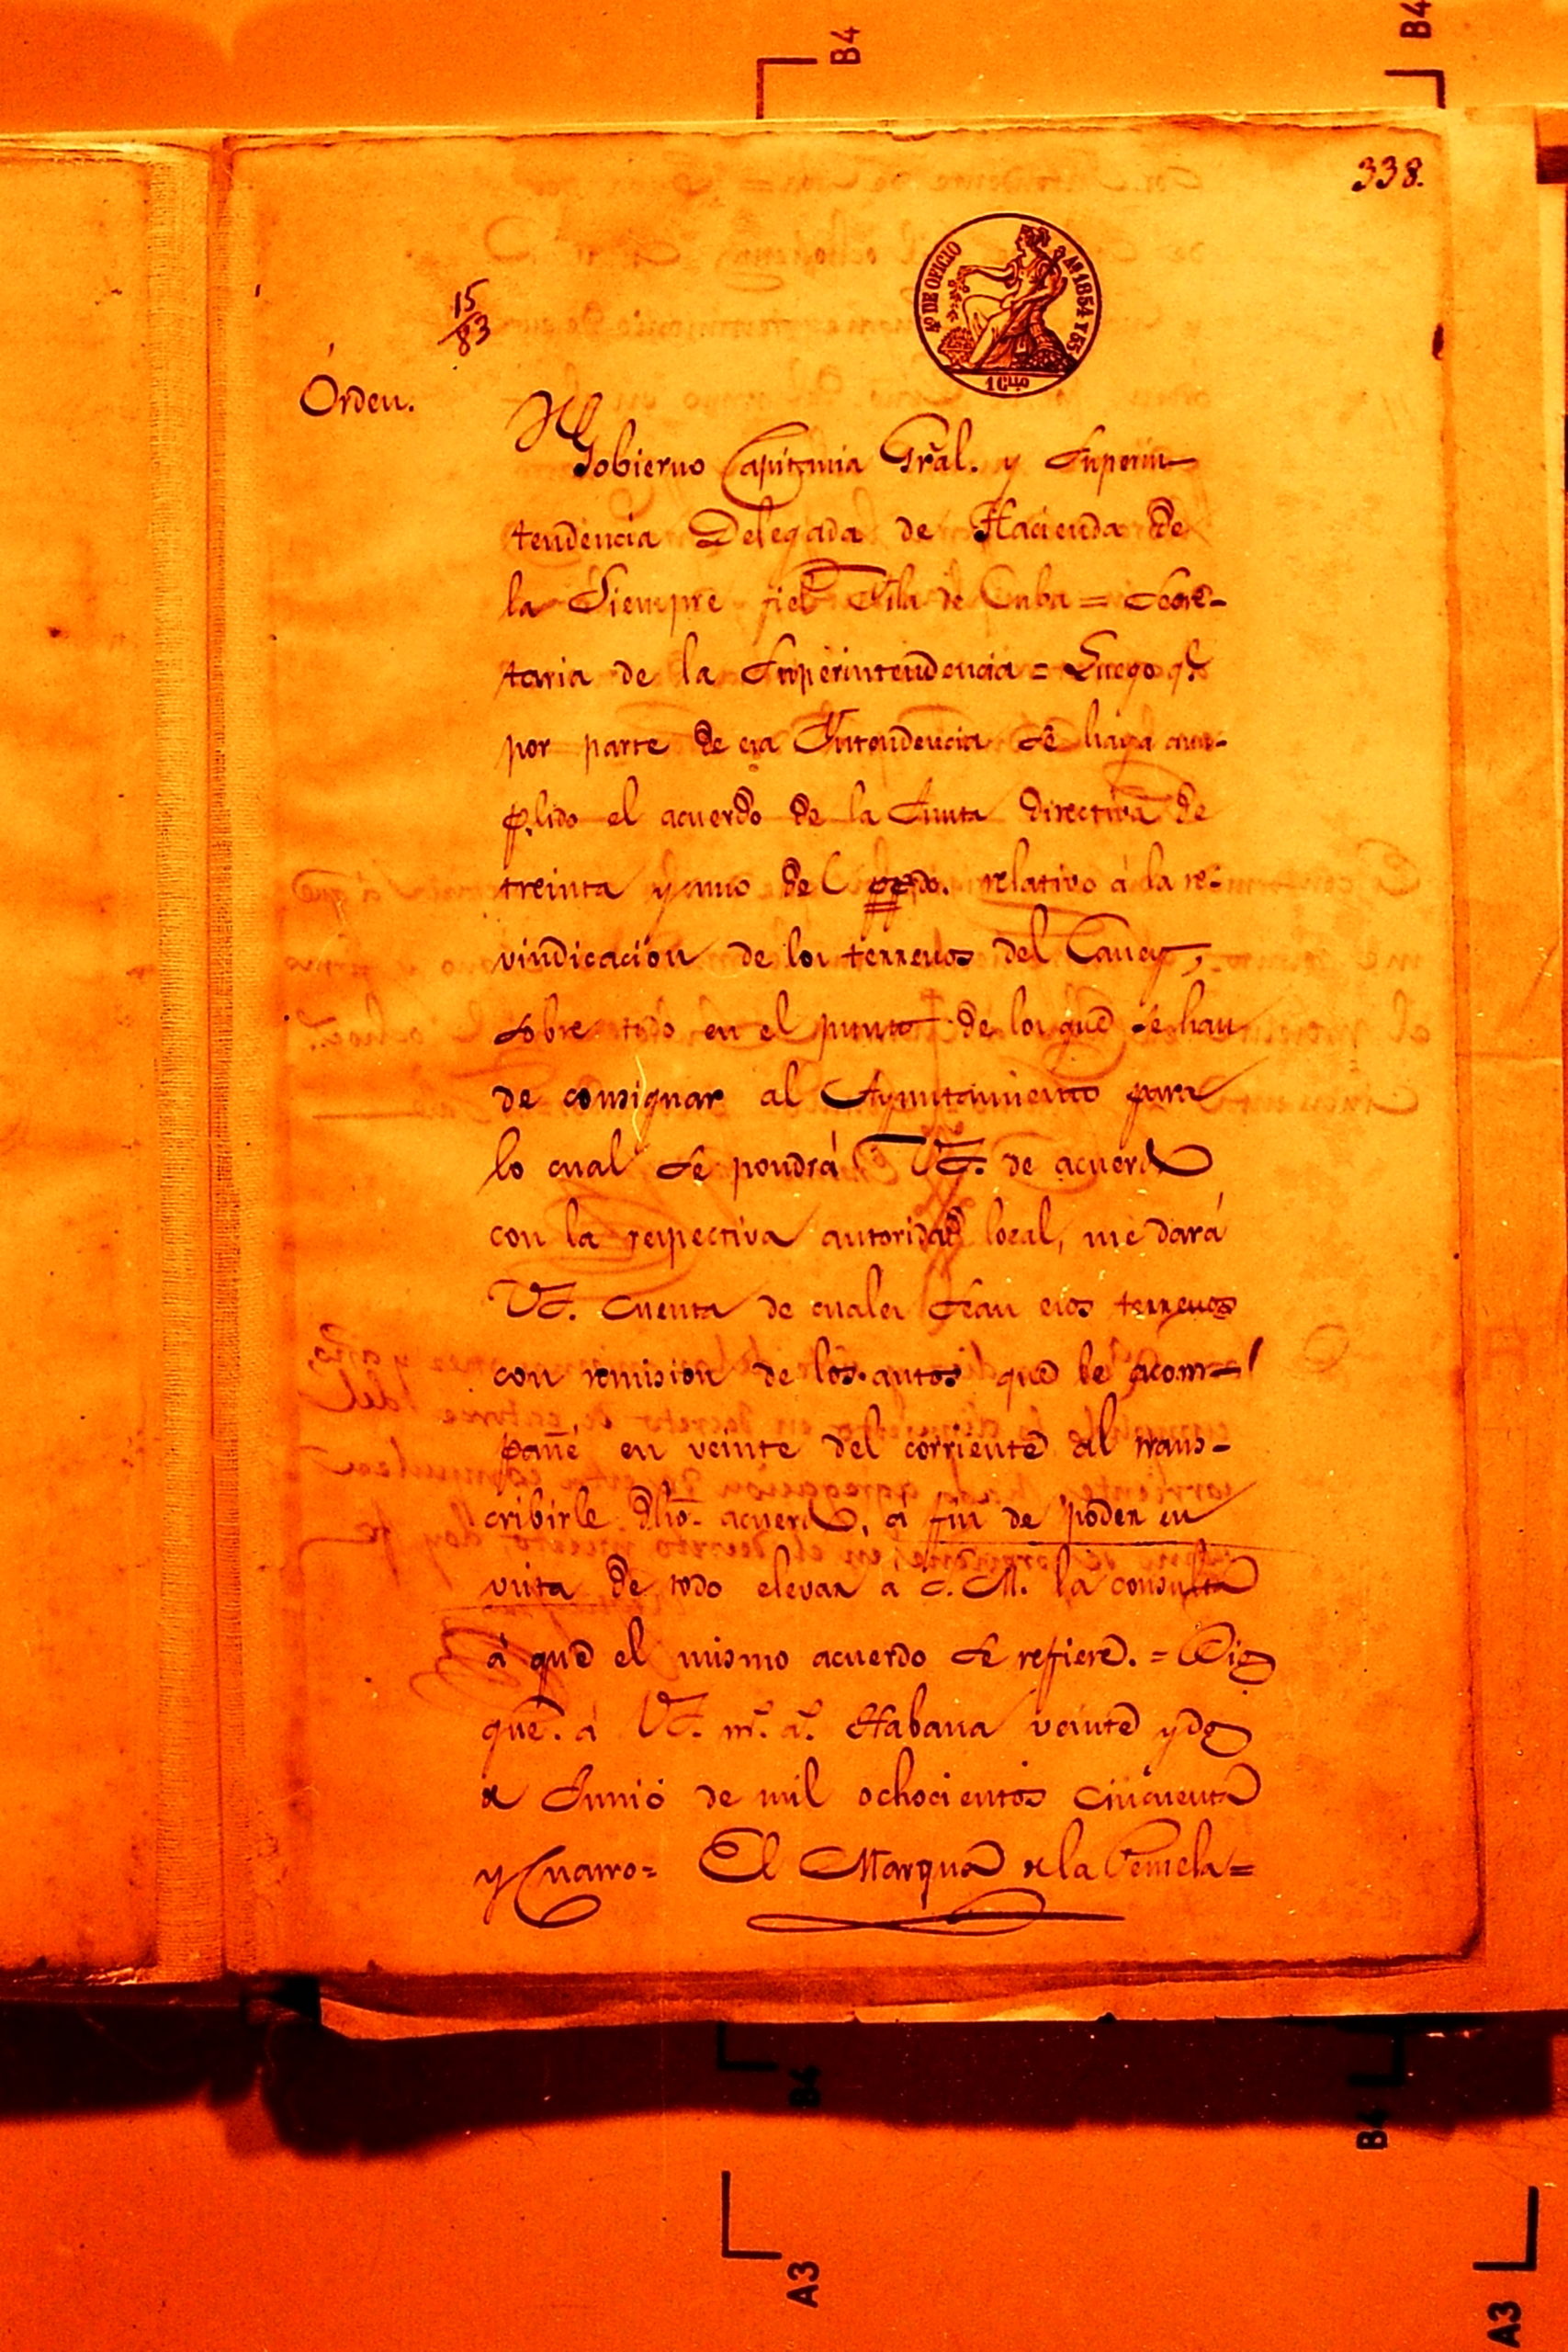 B4
B4
338.
4º DE OFICIO
Aº 1854 Y 55
15
83
Órden.
Gobierno Capitania Gral. y Superin-
tendencia Delegada de Hacienda de
la Siempre fiel Isla de Cuba = Secre-
taria de la Superintendencia = Luego qe
por parte de esa Intendencia se haya cum-
plido el acuerdo de la Junta directiva de
treinta y uno del ppdo. relativo á la re-
vindicacion de los terrenos del Caney,
sobre todo en el punto de los que se han
de consignar al Ayuntamiento para
lo cual se pondrá VS. de acuerdo
con la respectiva autoridad local, me dará
VS. cuenta de cuales sean esos terrenos
con remision de los autos que le acom-
pañé en veinte del corriente al trans-
cribirle dho. acuerdo, á fin de poder en
vista de todo elevar a S. M. la consulta
á que el mismo acuerdo se refiere. = Dios
que. á VS. ms. as. Habana veinte y dos
de Junio de mil ochocientos cincuenta
y Cuatro = El Marques de la Pezuela =
B4
B4
A3
A3